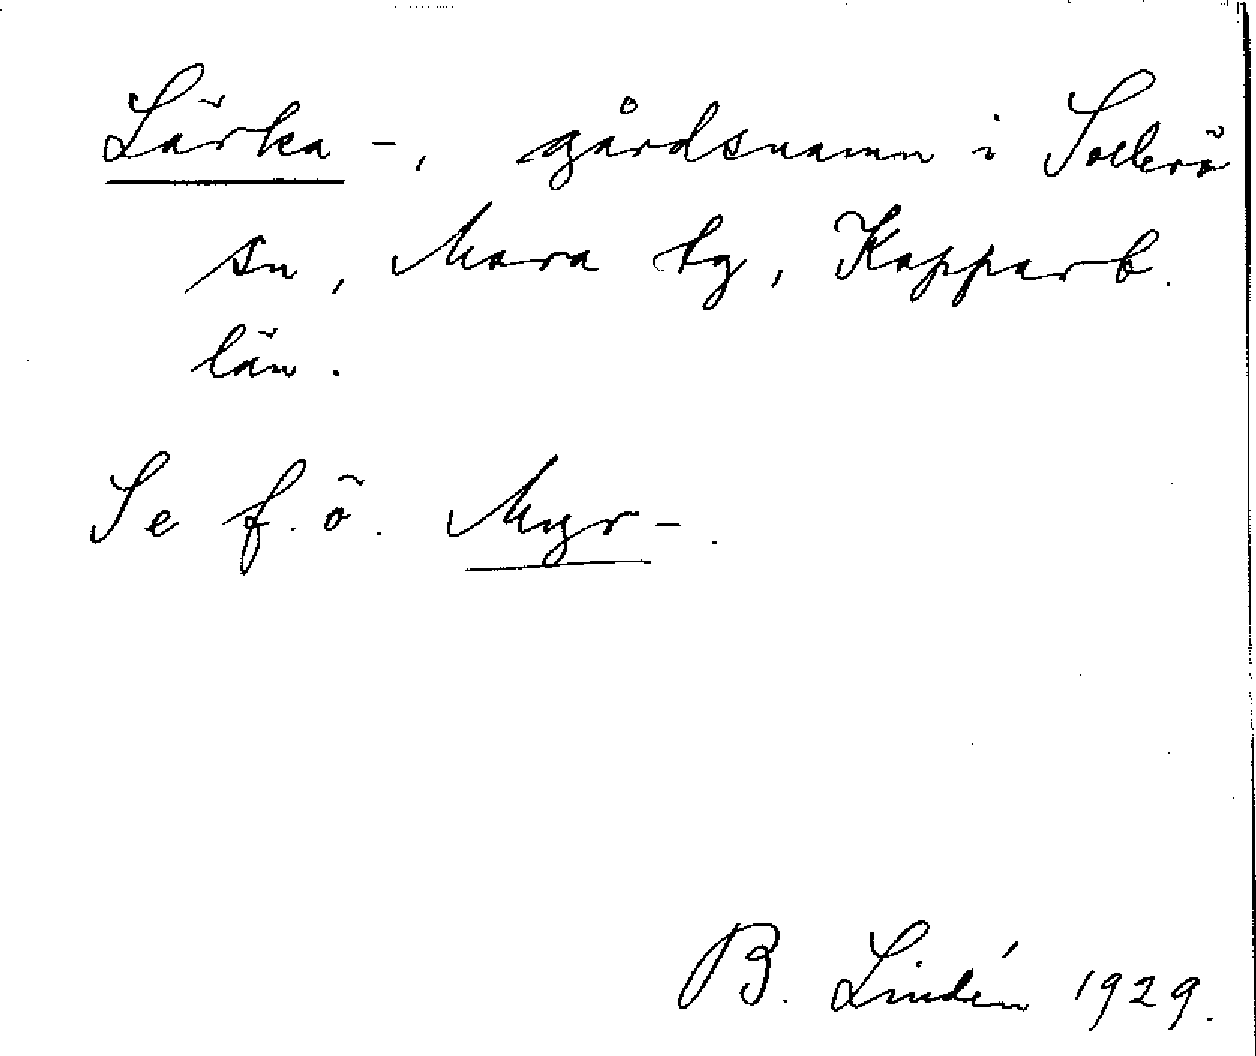 Lärka -, gårdsnamn i Sollerö
sn, Mora tg, Kopparb.
län.
Se f. ö. Myr-.
B. Lindén 1929.